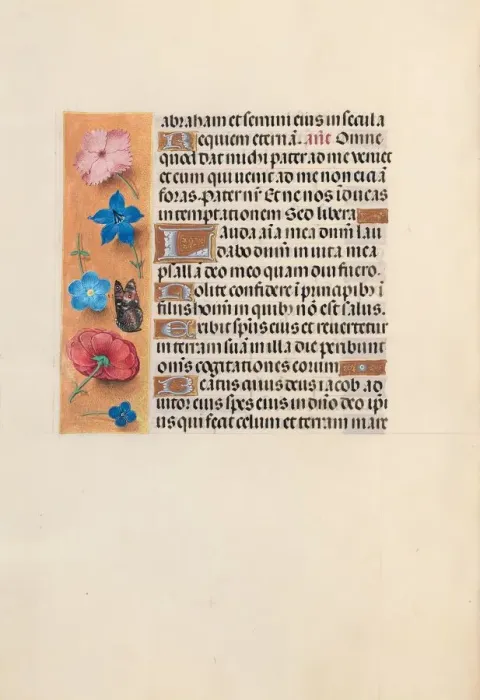 abraham et semini eius in secula
Requiem eternā. añt Omne
quod dat michi pater ad me veniet
et eum qui uenit ad me non eiciā
foras. Pater nr̄ Et ne nos īducas
in temptationem Sed libera
Lauda aīa mea dūm lau
dabo dūm in uita mea
psallā deo meo quam diu fuero.
Nolite confidere ī principibꝫ ī
filiis homīn in quibꝫ nō est salus.
Exibit spūs eius et reuertetur
in terram suā in illa die peribunt
om̄s cogitationes eorum
Beatus cuius deus iacob ad
iutor eius spes eius in dño deo ipī
us qui fecit celum et terram mare